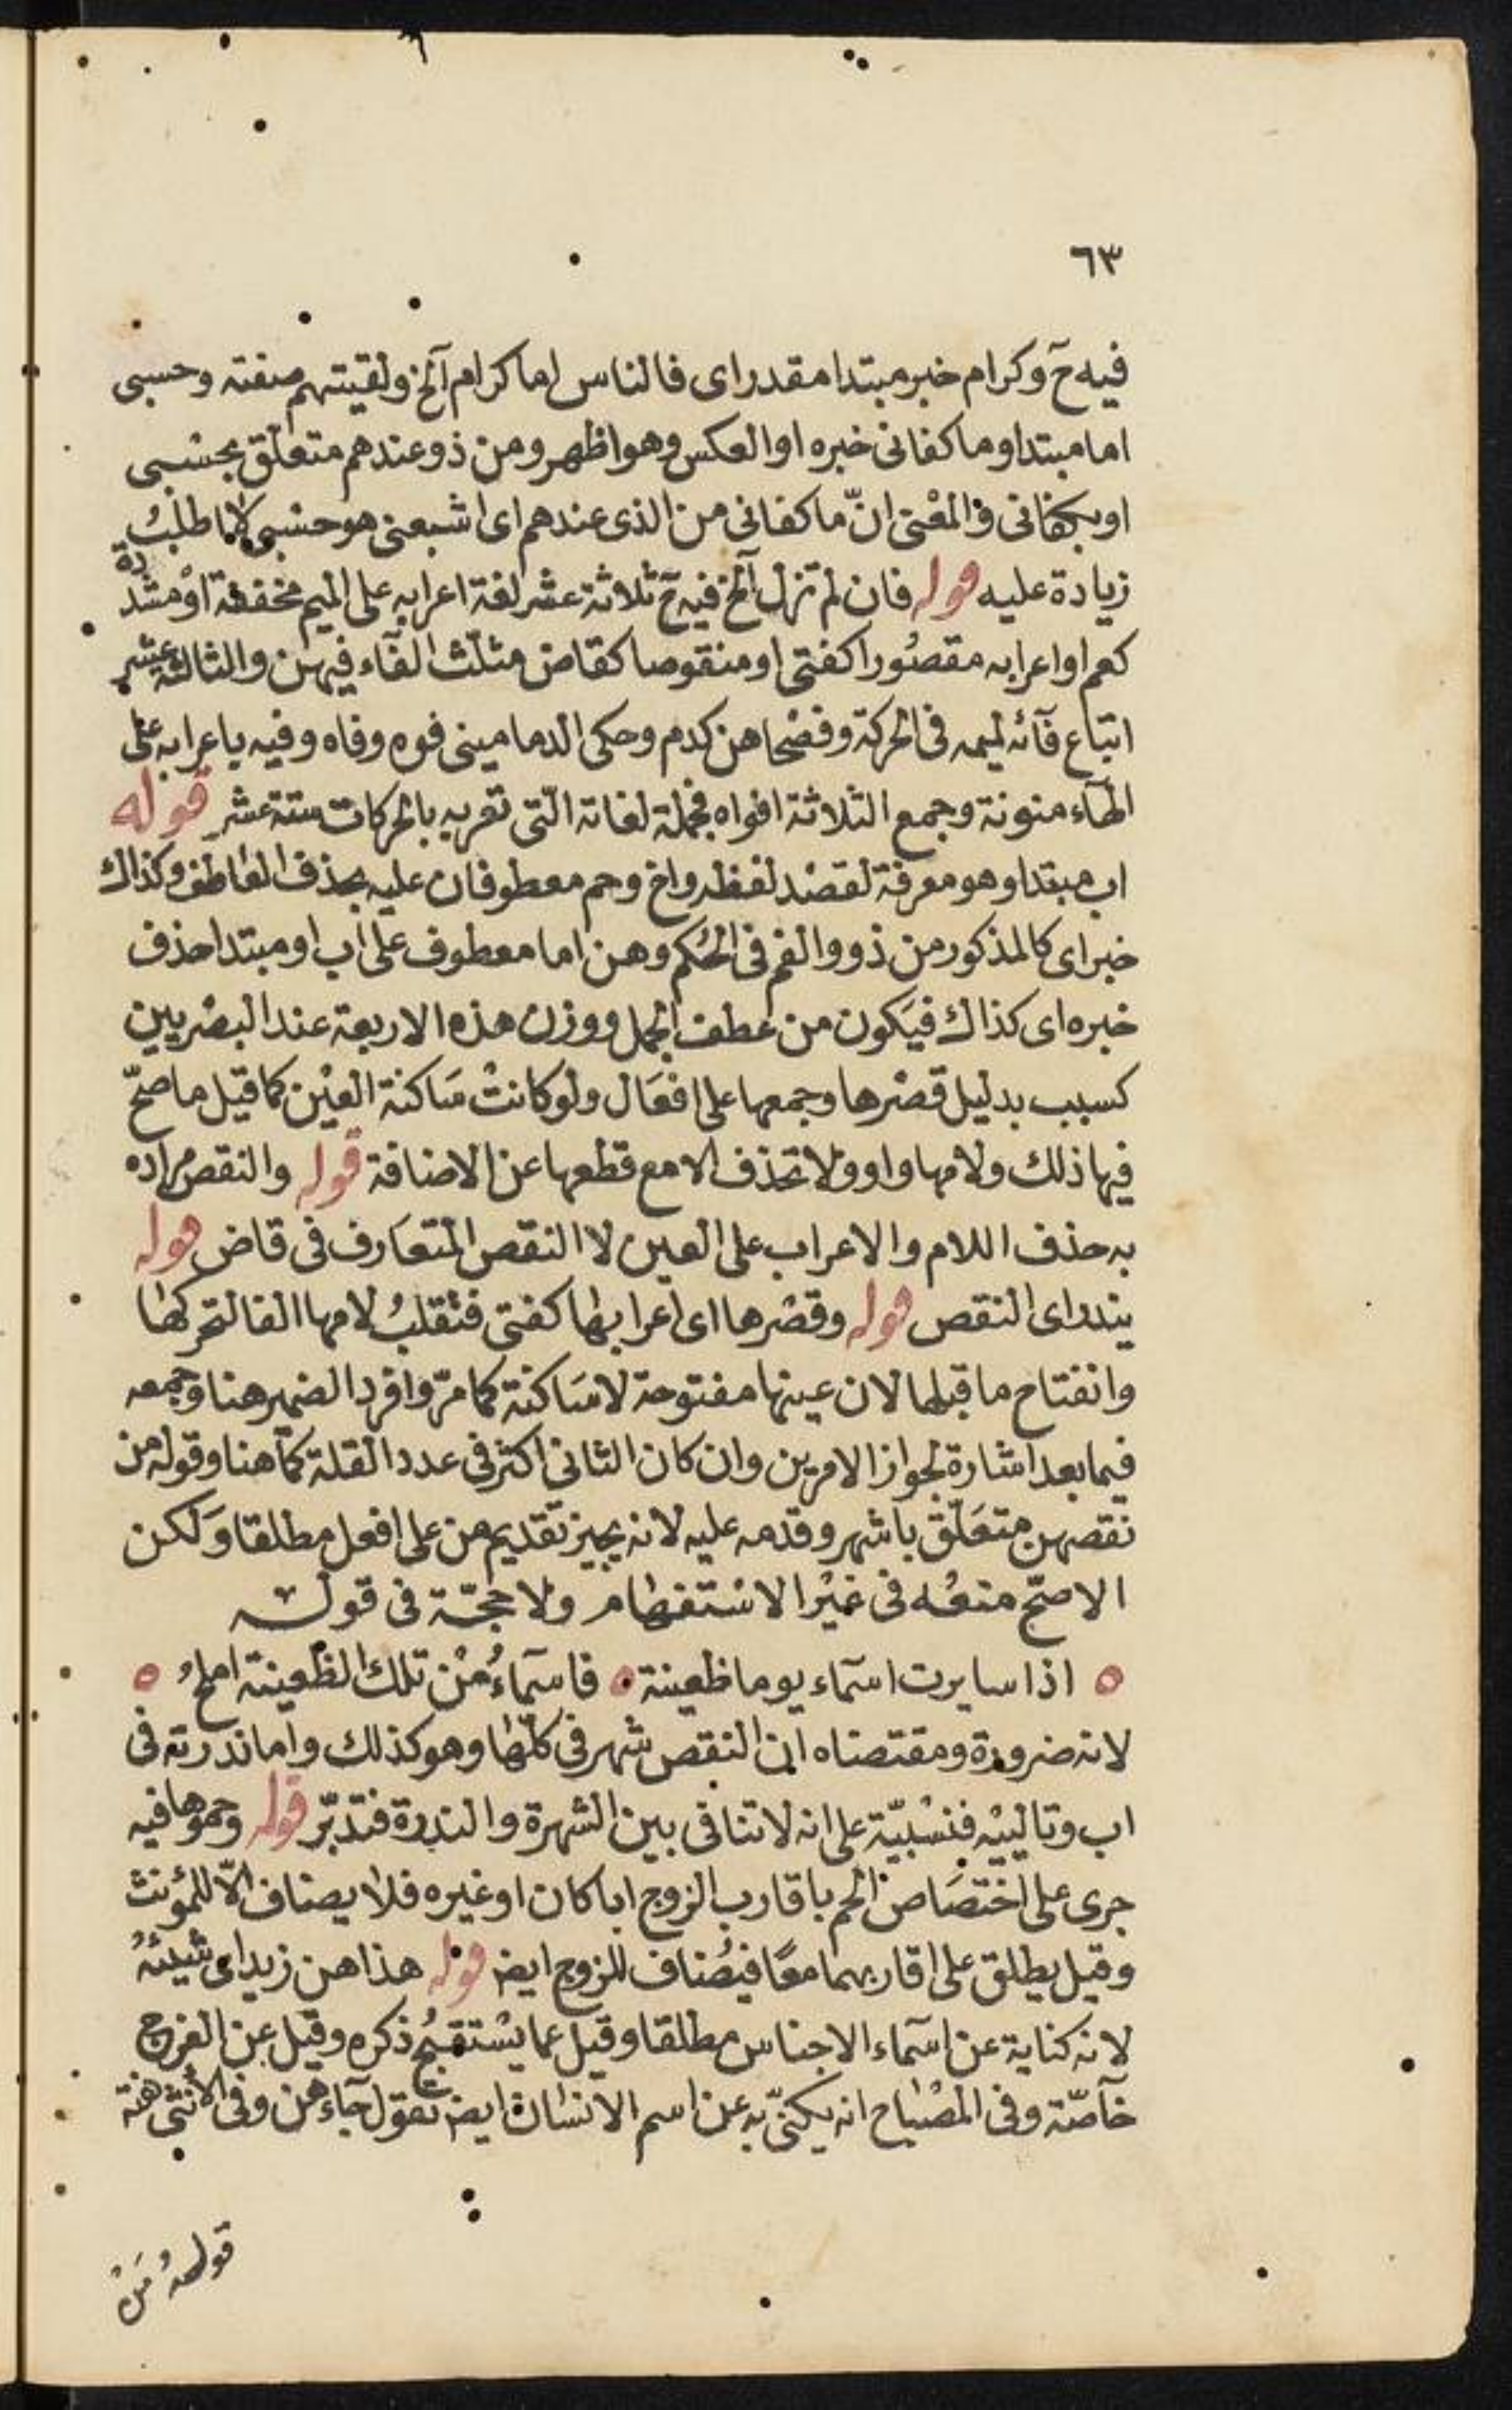 ٦٣
فيه ح وكرام خبر مبتدا مقدر اى فالناس اما كرام آلخ ولقيتهم صفته وحسبى
اما مبتدا وما كفانى خبره او العكس وهو اظهر ومن ذو عندهم متعلق بحسبى
او بكفانى والمعنى انّ ما كفانى من الذى عندهم اى اشبعنى هو حسبى لا اطلب
زيادة عليه قوله فان لم تزل آلخ فيه ح ثلاثة عشر لغة اعرابه على الميم مخففة او مشددة
كعم او اعرابه مقصورا كفتى او منقوصا كقاض مثلّث الفآء فيهن والثالثة عشر
اتباع فآئه لميمه فى الحركة وفصحاهن كدم وحكى الدمامينى فوه وفاه وفيه باعرابه على
الهآء منونة وجمع الثلاثة افواه فجملة لغاته الّتى تعربه بالحركات ستة عشر قوله
اب مبتدا وهو معرفة لقصد لفظه واخ وحم معطوفان عليه بحذف العاطف وكذاك
خبر اى كالمذكور من ذو والفم فى الحكم وهن اما معطوف على اب او مبتدا حذف
خبره اى كذاك فيكون من عطف الجمل ووزن هذه الاربعة عند البصريين
كسبب بدليل قصرها وجمعها على افعال ولو كانت ساكنة العين كما قيل ما صحّ
فيها ذلك ولامها واو ولا تحذف الا مع قطعها عن الاضافة قوله والنقص مراده
به حذف اللام والاعراب على العين لا النقص المتعارف فى قاض قوله
يندر اى النقص قوله وقصرها اى اعرابها كفتى فتقلب لامها الفا لتحركها
وانفتاح ما قبلها لان عينها مفتوحة لا ساكنة كما مرّ وافرد الضمير هنا وجمعه
فيما بعد اشارة لجواز الامرين وان كان الثانى اكثر فى عدد القلة كما هنا وقوله من
نقصهن متعلّق باشهر وقدمه عليه لانه يجيز تقديم من على افعل مطلقا ولكن
الاصحّ منعه فى غير الاستفهام ولا حجّة فى قوله
اذا سايرت اسمآء يوما ظعينة فاسمآءُ من تلك الظعينة املحُ
لانه ضرورة ومقتضاه ان النقص شهر فى كلّها وهو كذلك واما ندرته فى
اب وتالييه فنسبيّة على انه لا تنافى بين الشهرة والندرة فتدبّر قوله وحموها فيه
جرى على اختصاص الحم باقارب الزوج ابا كان او غيره فلا يضاف الّا للمؤنث
وقيل يطلق على اقاربهما معًا فيضاف للزوج ايض قوله هذا هن زيد اى شيئه
لانه كناية عن اسمآء الاجناس مطلقا وقيل عما يستقبح ذكره وقيل عن الفرج
خآصّة وفى المصباح انه يكنّى به عن اسم الانسان ايض تقول جآء هن وفى الأنثى هنة
قوله من